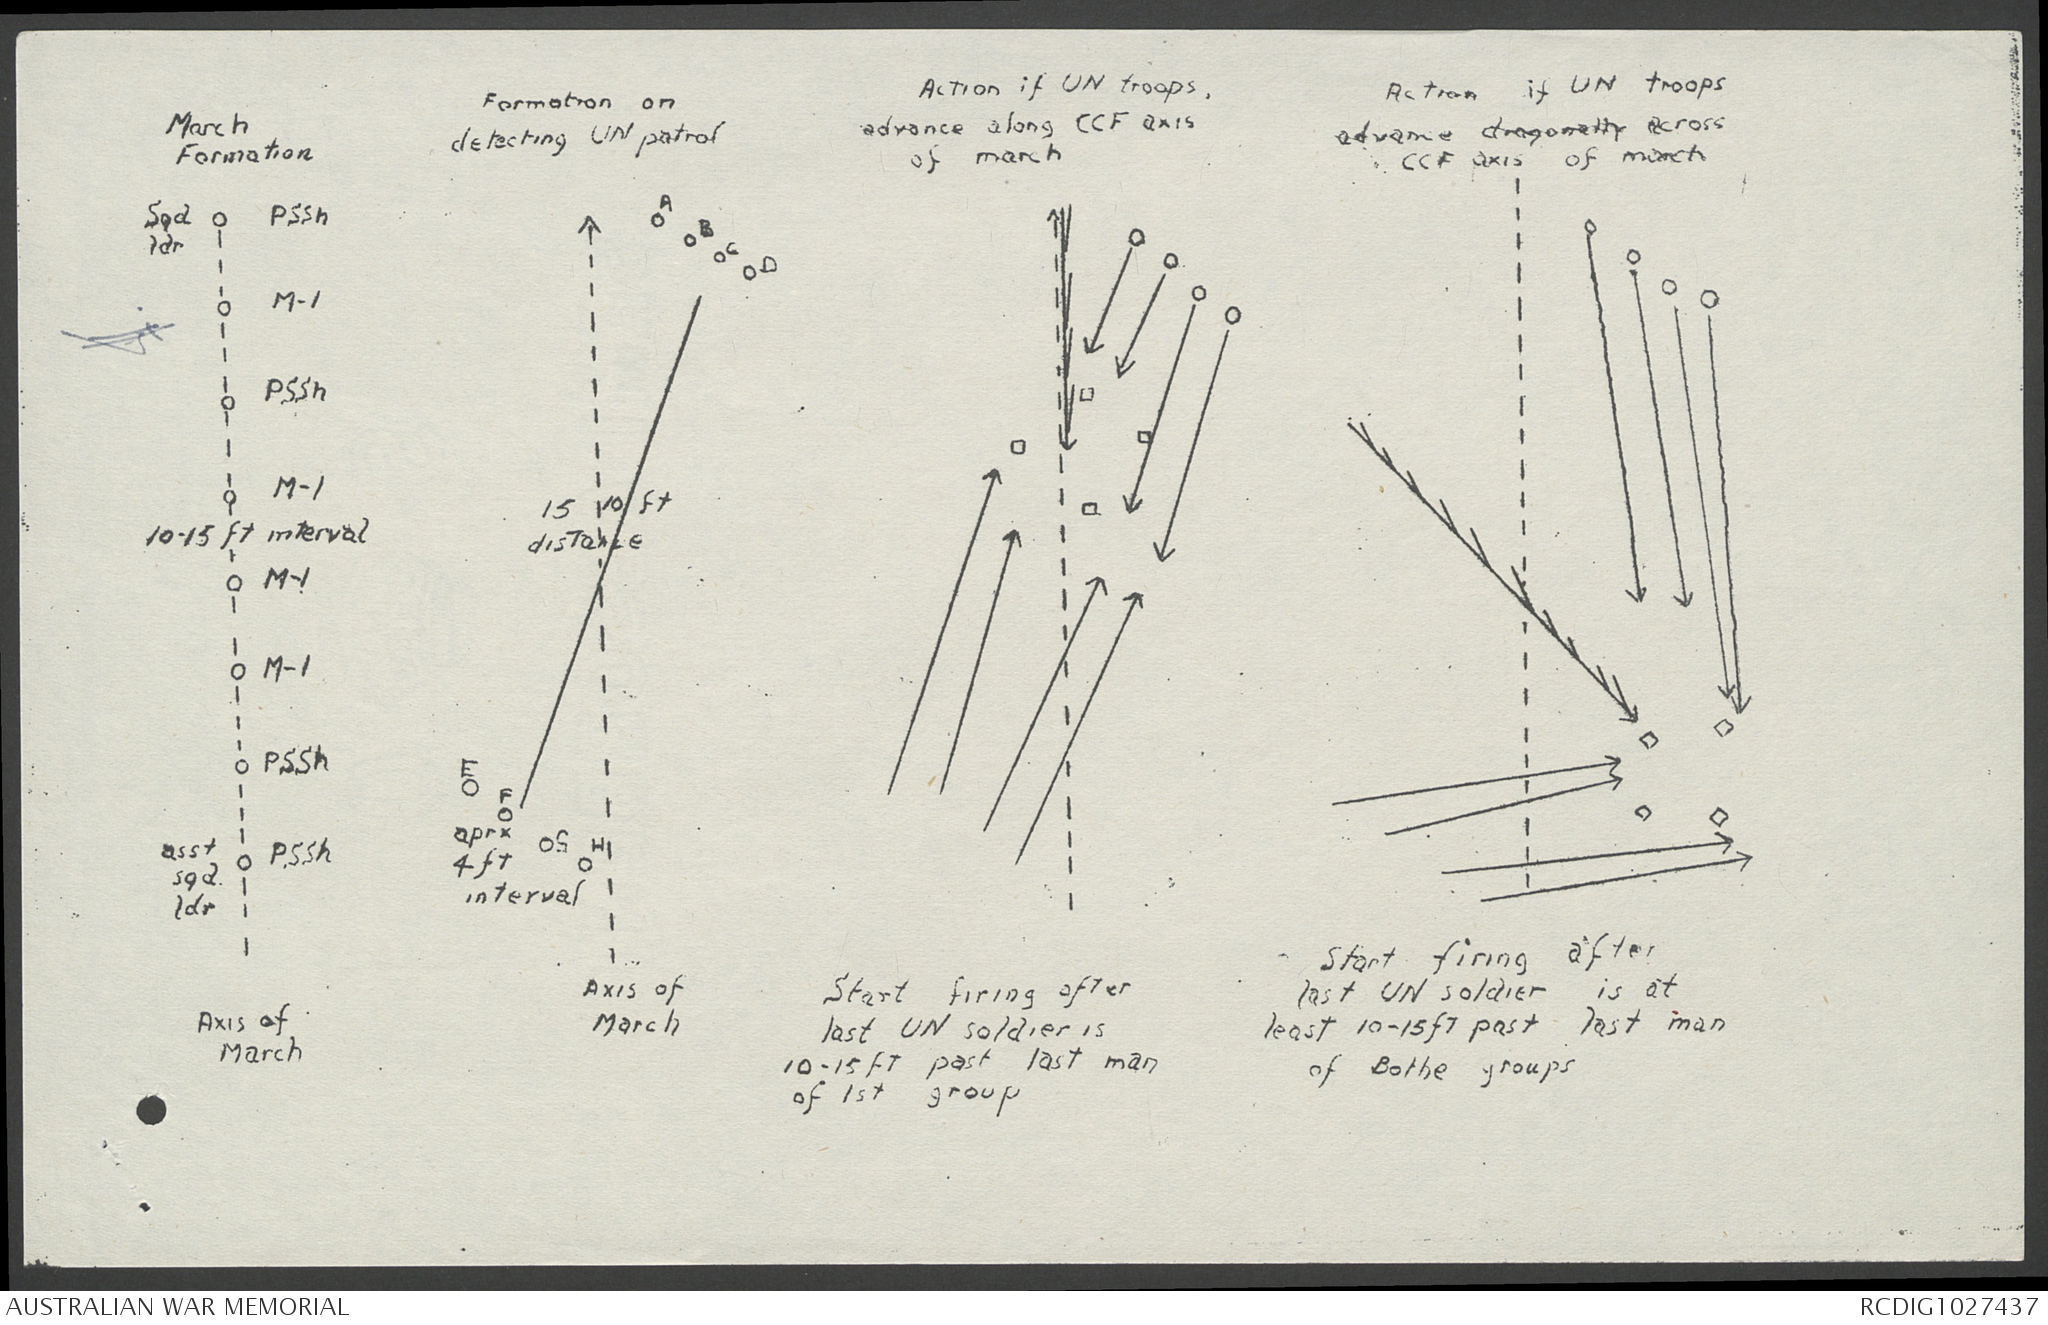 March
Formation
Sqd
ldr
PSSh
M-1
PSSh
M-1
10-15 ft interval
M-1
M-1
PSSh
asst
sqd.
ldr
PSSh
Axis of
March
Formation on
detecting UN patrol
A
B
C
D
15 10 ft
distance
E
F
G
H
aprx
4 ft
interval
Axis of
March
Action if UN troops,
advance along CCF axis
of march
Start firing after
last UN soldier is
10-15 FT past last man
of 1st group
Action if UN troops
advance diagonally across
CCF axis of march
Start firing after
last UN soldier is at
least 10-15 fT past last man
of Bothe groups
AUSTRALIAN WAR MEMORIAL
RCDIG1027437